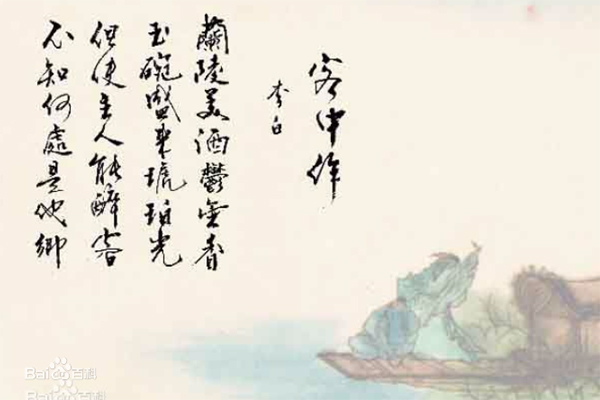 客中作
李白
蘭陵美酒鬱金香
玉碗盛來琥珀光
但使主人能醉客
不知何處是他鄉
Bai百科
Bai百科